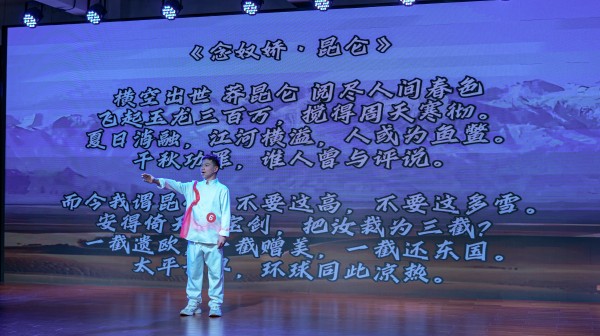 《念奴娇·昆仑》
横空出世 莽昆仑 阅尽人间春色
飞起玉龙三百万，搅得周天寒彻。
夏日消融，江河横溢，人或为鱼鳖。
千秋功罪，谁人曾与评说。
而今我谓昆 不要这高，不要这多雪。
安得倚天 宝剑，把汝裁为三截？
一截遗欧 截赠美，一截还东国。
太平 界，环球同此凉热。
6